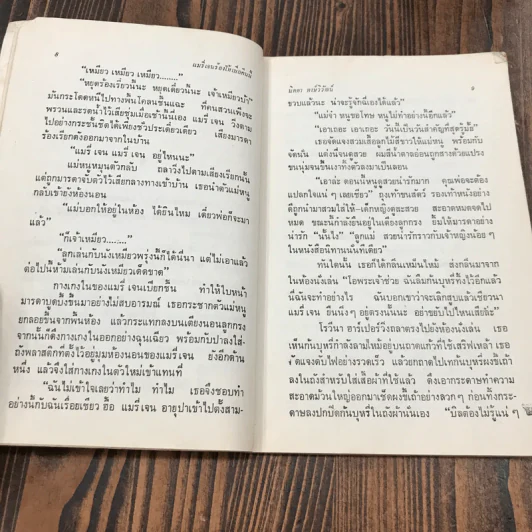 ๘
แมรี่เจนร้องไห้เมื่อคืนนี้
"เหมียว เหมียว เหมียว........"
"หยุดร้องเรี่ยวนั้นะ หยุดเดี๋ยวนี้นะ เจ้าเหมียวบ้า"
มันกระโดดหนีไปทางพื้นโคลนชื้นแฉะ ที่คนสวนเพิ่งจะ
พรวนและรดน้ำไว้เสียชุ่มเมื่อเช้านี้นี่เอง แมรี่ เจน วิ่งตาม
ไปอย่างกระชั้นชิดได้เพียงชั่วประเดี๋ยวเดียว เสียงมารดา
ร้องเรียกดังออกมาจากในบ้าน
"แมรี่ เจน แมรี่ เจน อยู่ไหนนะ"
แม่หนูหมุนตัวกลับ ถลาวิ่งไปตามเสียงเรียกนั้น
แต่ถูกมารดาจับตัวไว้เสียกลางทางเข้าบ้าน เธอนำตัวแม่หนู
กลับเข้ายังห้องนอน
"แม่บอกให้อยู่ในห้อง ได้ยินไหม เดี๋ยวพ่อก็จะมา
แล้ว"
"ก็เจ้าเหมียว......."
"ลูกเล่นกับนังเหมียวพรุ่งนี้ก็ได้นี่นา แต่ไม่เอาแล้ว
ต่อไปนี้ห้ามเล่นกับนังเหมียวเด็ดขาด"
กางเกงในของแมรี่ เจนเปียกชื้น ทำให้ใบหน้า
มารดาบูดบึ้งขึ้นมาอย่างไม่สบอารมณ์ เธอกระชากตัวแม่หนู
ยกลอยขึ้นจากพื้นห้อง แล้วกระแทกลงบนเตียงนอนลูกกรง
จากนั้นก็ดึงกางเกงในออกอย่างฉุนเฉียว พร้อมกับปาลงใส่-
ถังพลาสติกที่ตั้งไว้อยู่มุมห้องนอนของแมรี่ เจน ยังอีกด้าน
หนึ่ง แล้วจึงใส่กางเกงในตัวใหม่เข้าแทนที่
"ฉันไม่เข้าใจเลยว่าทำไม ทำไม เธอจึงชอบทำ
อย่างนี้กับฉันเรื่อยเชียว ฮึ้อ แมรี่ เจน อายุปาเข้าไปตั้งสาม-
๙
ขวบแล้วนะ น่าจะรู้จักนี่เองได้แล้ว"
"แม่จ๋า หนูขอโทษ หนูไม่ทำอย่างนี้อีกแล้ว"
"เอาเถอะ เอาเถอะ วันนี้เป็นวันสำคัญที่สุดรู้มั้ย"
เธอจัดแจงสวมเสื้อลูกไม้สีขาวให้แม่หนู พร้อมกับ
จัดนั่น แต่งนี่จนดูสวย ผมสีน้ำตาลอ่อนถูกสางด้วยแปรง
ขนนุ่มจนขึ้นเงาทิ้งตัวลงมาบนไหล่
"เอาล่ะ ตอนนี้หนูดูสวยน่ารักมาก คุณพ่อจะต้อง
แปลกใจแน่ ๆ เลยเชียว" ถุงเท้าขนสัตว์ รองเท้าหนังอย่าง
ดีถูกนำมาสวมใส่ให้-เด็กหญิงดูสะสวย สะอาดหมดจดไป
หมด ขณะนั้นกำลังยืนอยู่ในเตียงลูกกรง ยิ้มให้มารดาอย่าง
น่ารัก "นั่นไง" "ลูกแม่ สวยน่ารักราวกับเจ้าหญิงน้อย ๆ
ในหนังสือนิทานนั้นทีเดียว"
ทันใดนั้น เธอก็ได้กลิ่นเหม็นไหม้ ส่งกลิ่นมาจาก
ในห้องนั่งเล่น "โอพระเจ้าช่วย ฉันลืมก้นบุหรี่ทิ้งไว้อีกแล้ว
นี่ฉันจะทำอย่างไร ฉันบอกเขาว่าจะเลิกสูบแล้วเชียวนา
แมรี่ เจน ยืนนิ่ง ๆ อยู่ตรงนั้นนะ อย่าขยับไปไหนเชียล่ะ"
โรวีนา ฮาร์เปอร์วิ่งถลาตรงไปยังห้องนั่งเล่น เธอ
เห็นก้นบุหรี่กำลังลามไหม้อยู่บนถาดแก้วที่ใช้เสริฟเหล้า เธอ
จัดแจงดับไฟอย่างรวดเร็ว แล้วยกถาดไปเทก้นบุหรี่ ผงขี้เถ้า
ลงในถังสำหรับใส่เสื้อผ้าที่ใช้แล้ว ดึงเอากระดาษทำความ
สะอาดม้วนใหญ่ออกมาเช็ดผงขี้เถ้าอย่างลวกๆ ก่อนทิ้งกระ-
ดาษลงปกปิดก้นบุหรี่ในถังผ้านั่นเอง "บิลต้องไม่รู้แน่ ๆ